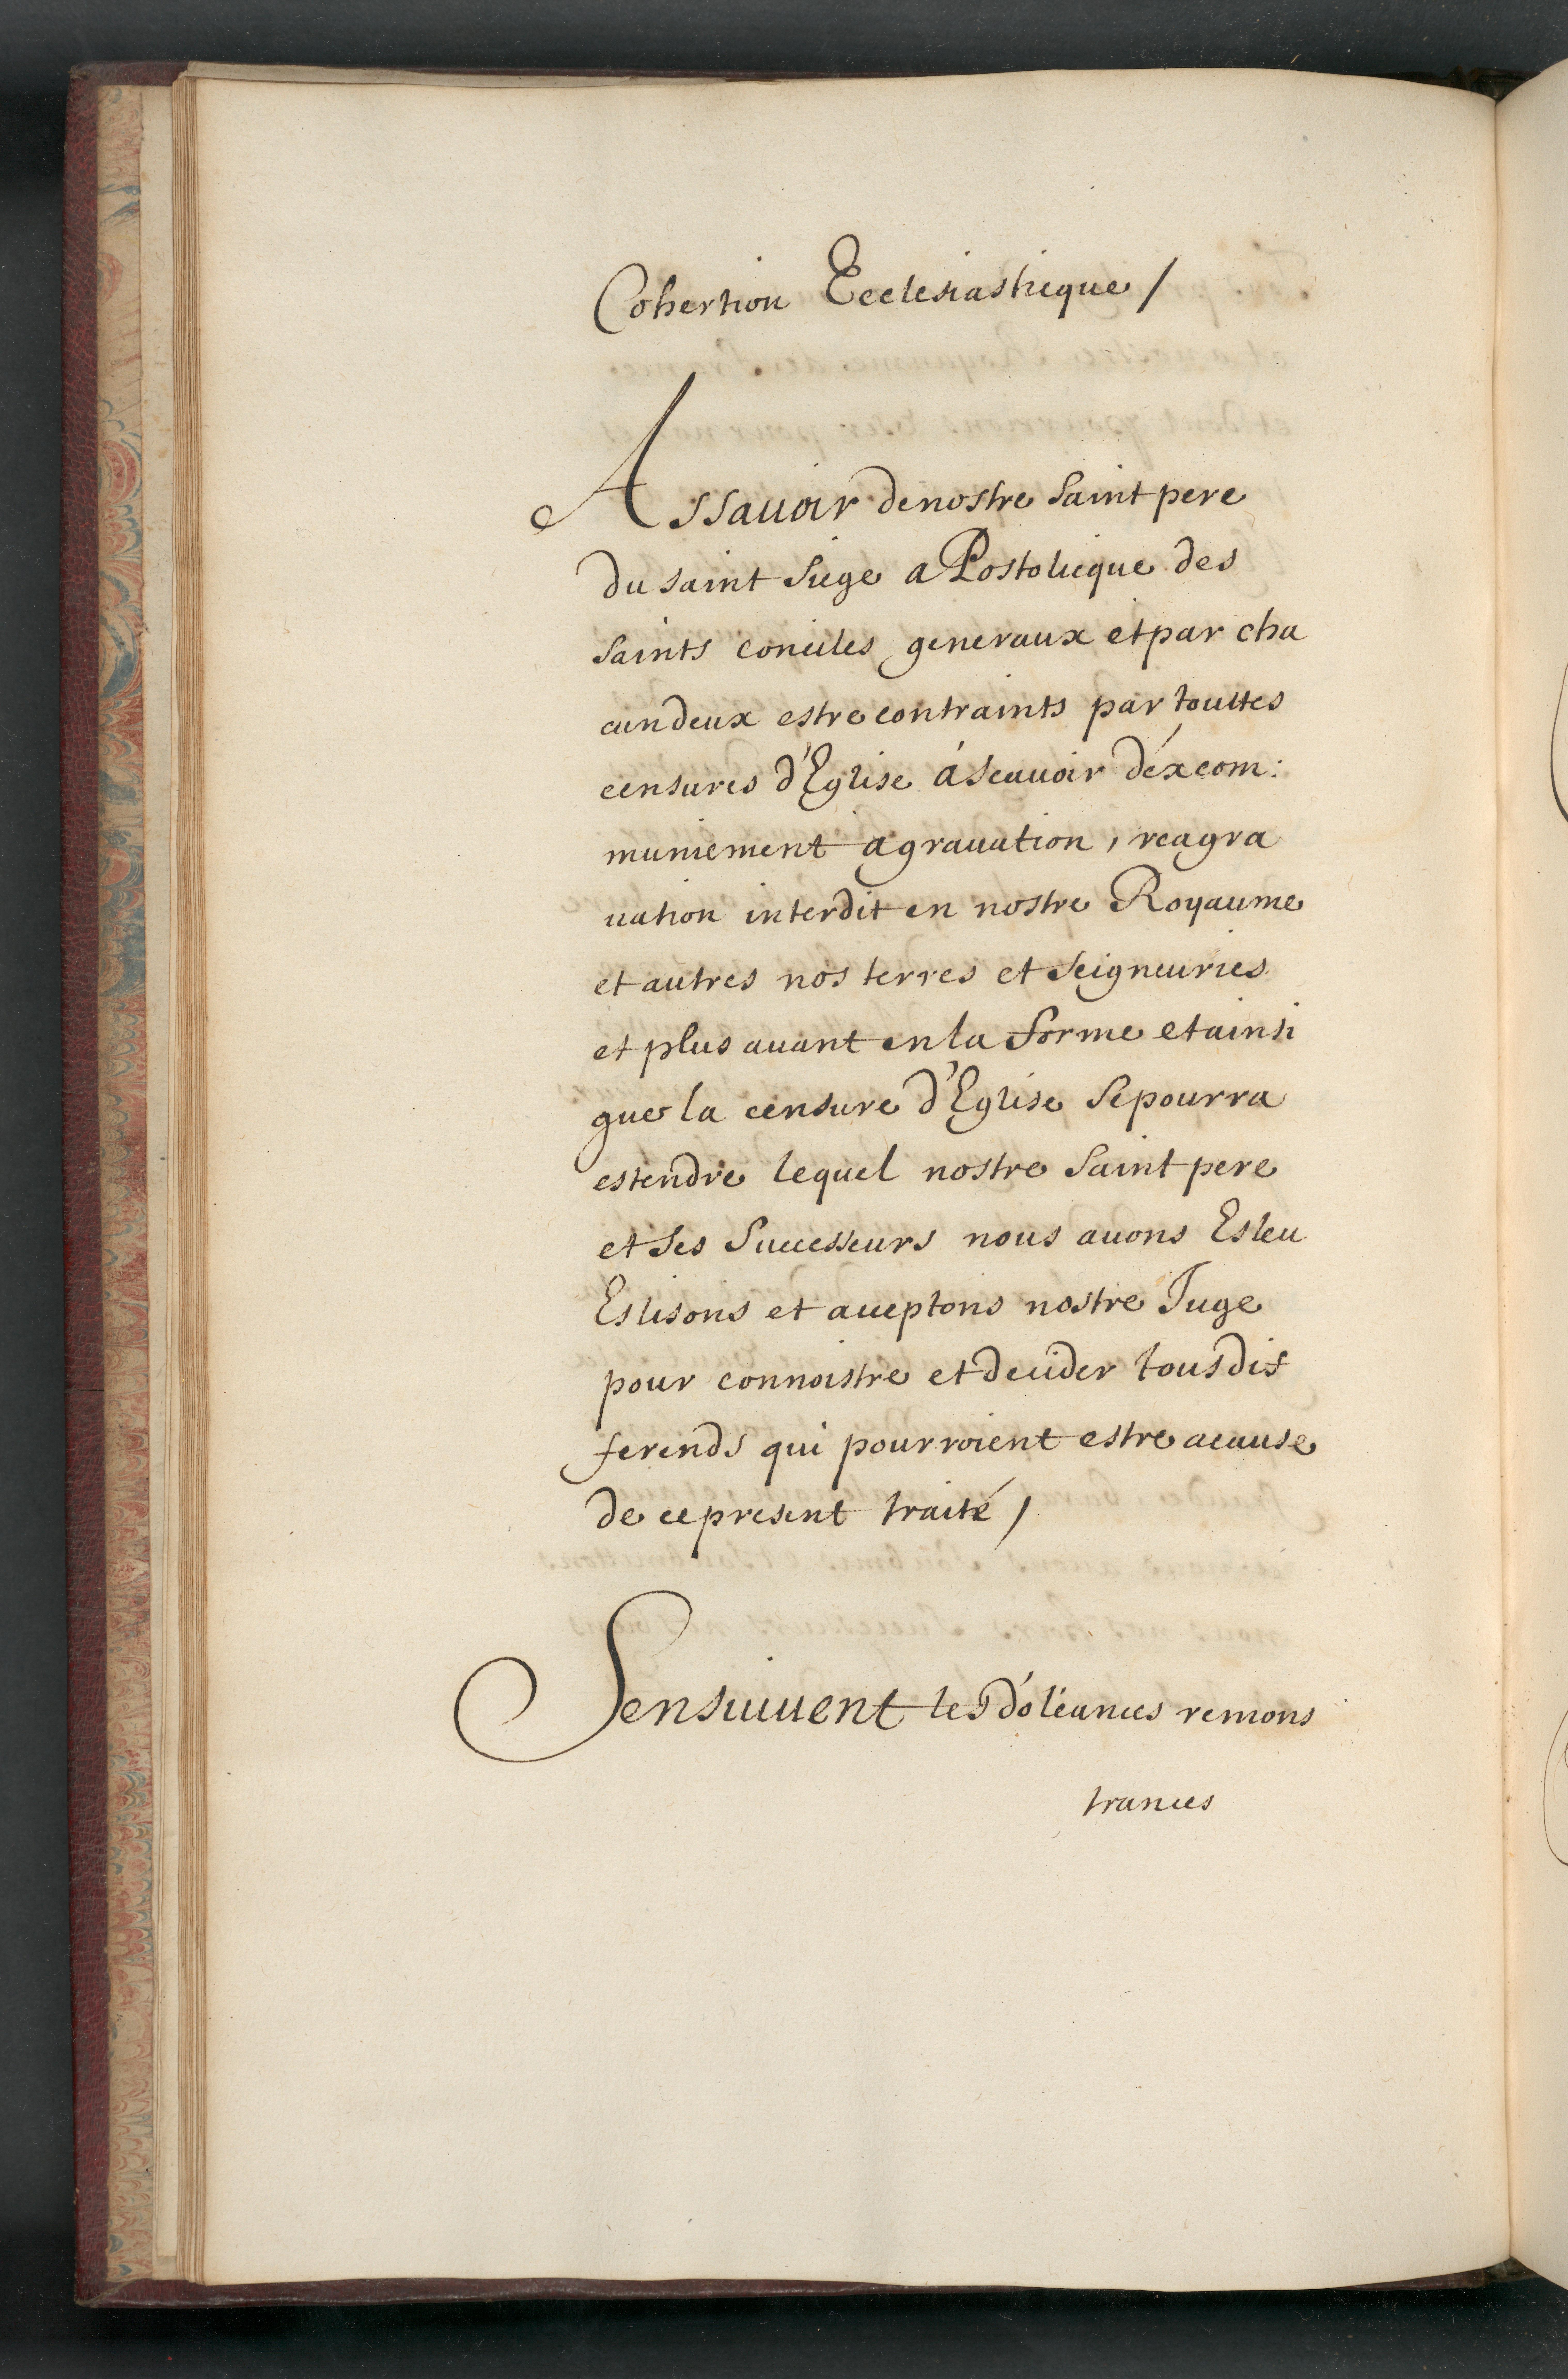 Cohertion Ecclesiasticque /
Assauoir de nostre Saint pere
du saint Siege aPostolicque des
Saints conciles generaux et par cha
cun deux estre contraints par touttes
censures d'Eglise áscauoir déxcom:
muniement agrauation, reagra
uation interdit en nostre Royaume
et autres nos terres et Seigneuries
et plus auant en la forme et ainsi
que la censure d'Eglise Se pourra
estendre lequel nostre Saint pere
et Ses Successeurs nous auons Esleu
Eslisons et acceptons nostre Juge
pour connoistre et decider tous dif
ferends qui pourroient estre acause
de ce present traité /
Sensuiuent les doléances remons
trances